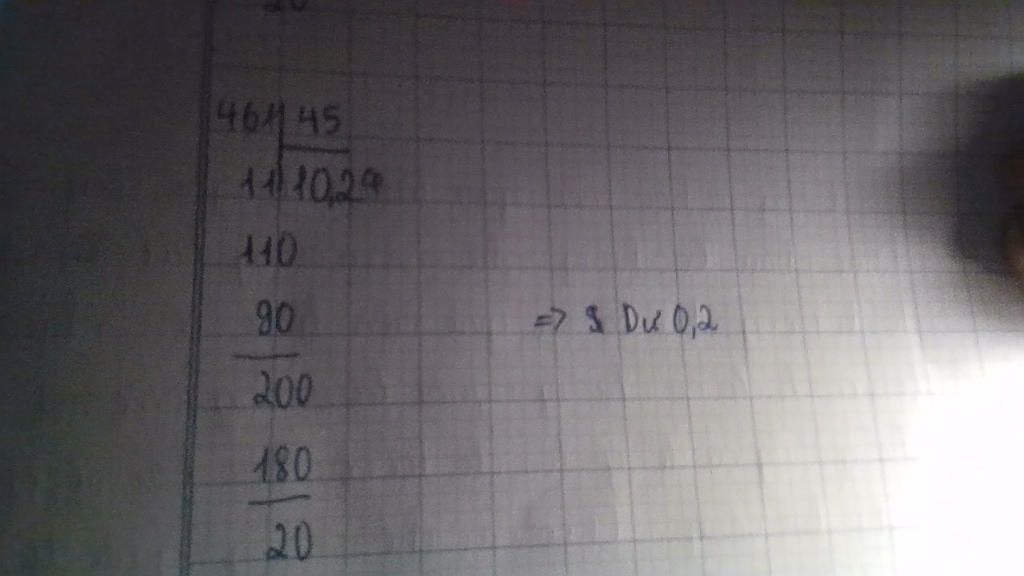 20
461 45
11 10,24
110
90
200
=> Dư 0,2
180
20